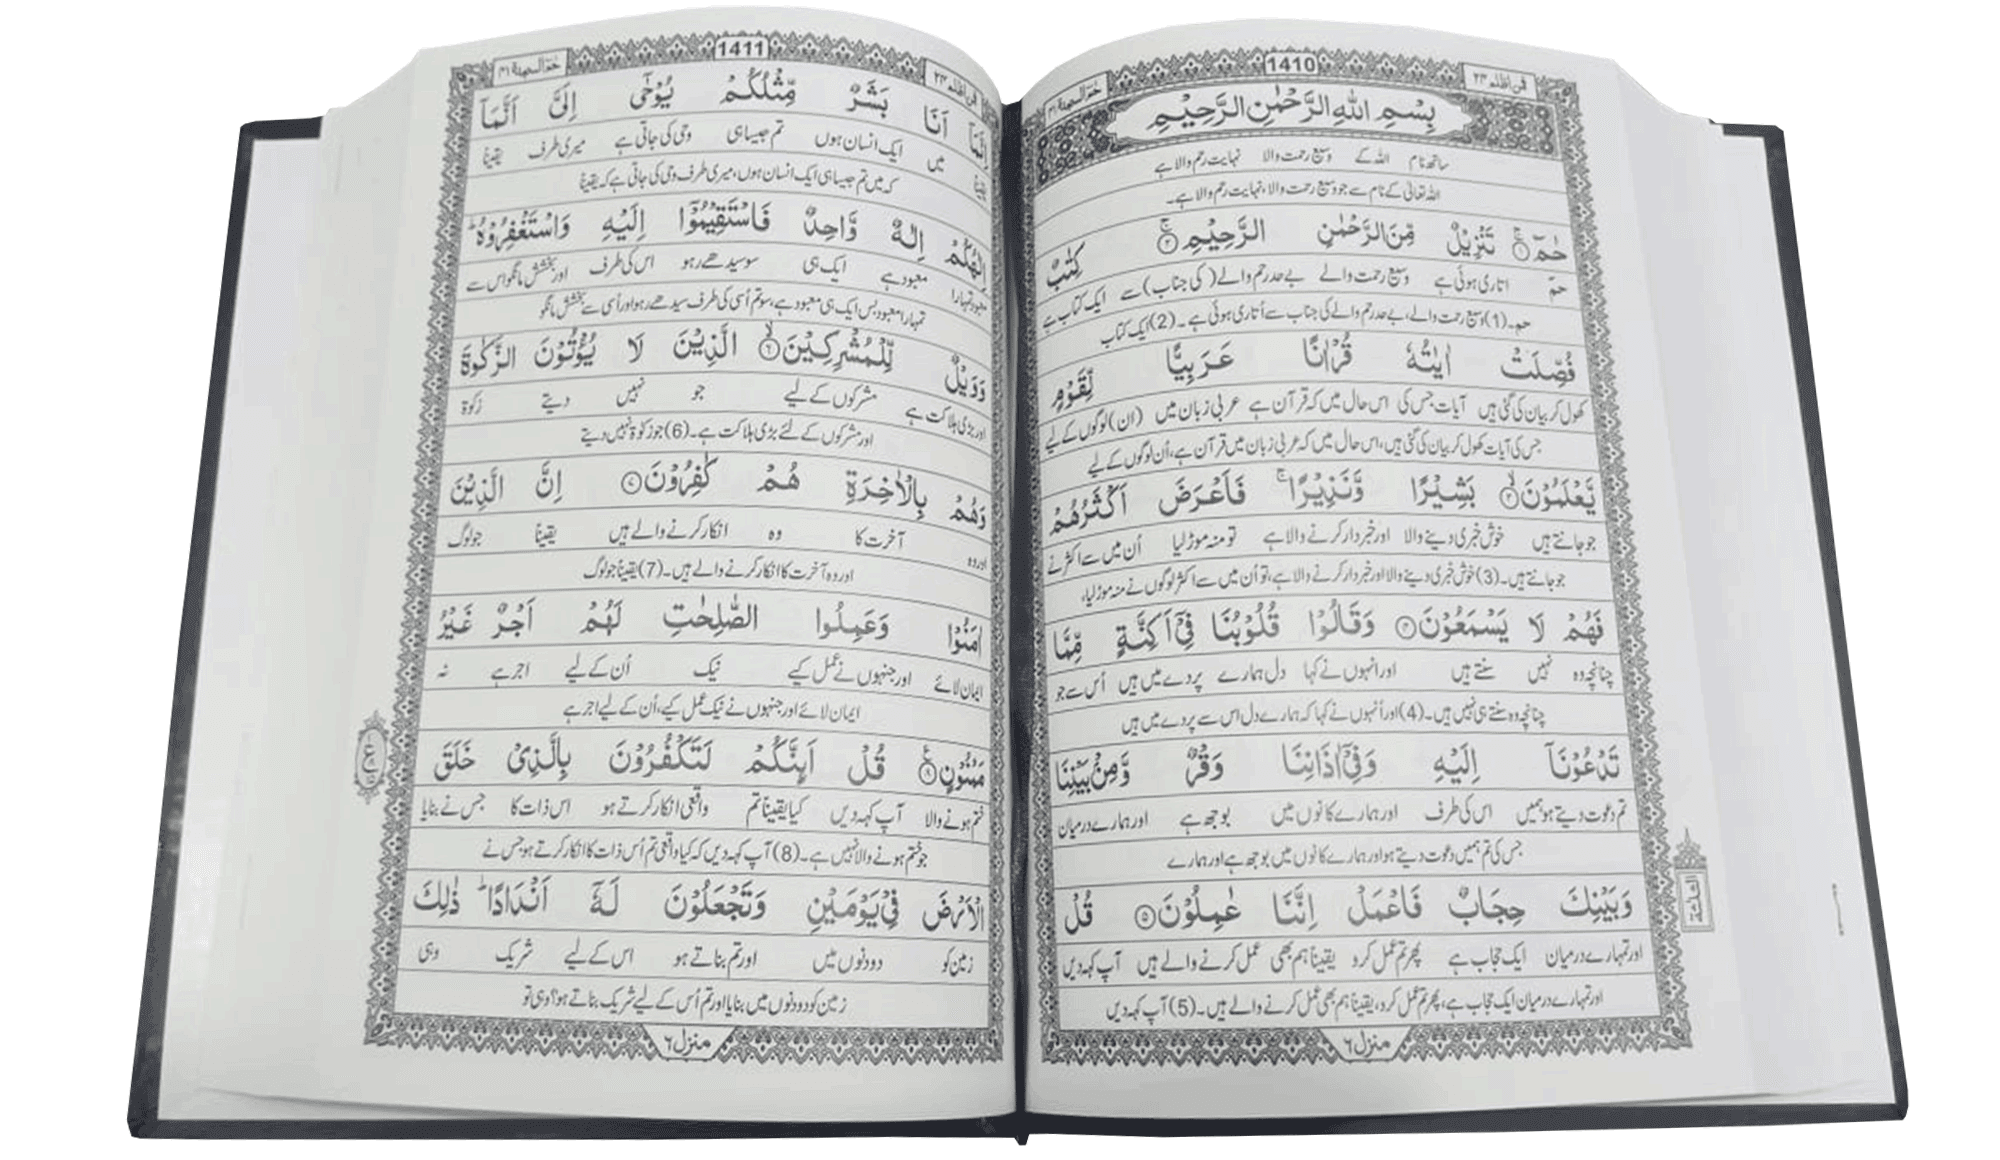 حٰمٓ السجدة ٤١
1410
فمن اظلم ٢٤
بِسْمِ اللّٰهِ الرَّحْمٰنِ الرَّحِيْمِ
ساتھ نام اللہ کے وسیع رحمت والا نہایت رحم والا ہے
اللہ تعالیٰ کے نام سے جو وسیع رحمت والا، نہایت رحم والا ہے۔
حٰمٓ ۚ ۝١ تَنْزِيْلٌ مِّنَ الرَّحْمٰنِ الرَّحِيْمِ ۚ ۝٢ كِتٰبٌ
حمٓ اتاری ہوئی ہے وسیع رحمت والے بے حد رحم والے (کی جناب) سے ایک کتاب ہے
حم۔ (1) وسیع رحمت والے، بے حد رحم والے کی جناب سے اُتاری ہوئی ہے۔ (2) ایک کتاب
فُصِّلَتْ اٰيٰتُهٗ قُرْاٰنًا عَرَبِيًّا لِّقَوْمٍ
کھول کر بیان کی گئی ہیں آیات جس کی اس حال میں کہ قرآن ہے عربی زبان میں (ان) لوگوں کے لیے
جس کی آیات کھول کر بیان کی گئی ہیں، اس حال میں کہ عربی زبان میں قرآن ہے، اُن لوگوں کے لیے
يَّعْلَمُوْنَ ۙ ۝٣ بَشِيْرًا وَّنَذِيْرًا ۚ فَاَعْرَضَ اَكْثَرُهُمْ
جو جانتے ہیں خوش خبری دینے والا اور خبردار کرنے والا ہے تو منہ موڑ لیا اُن میں سے اکثر نے
جو جانتے ہیں۔ (3) خوش خبری دینے والا اور خبردار کرنے والا ہے، تو اُن میں سے اکثر لوگوں نے منہ موڑ لیا،
فَهُمْ لَا يَسْمَعُوْنَ ۝٤ وَقَالُوْا قُلُوْبُنَا فِيْٓ اَكِنَّةٍ مِّمَّا
چنانچہ وہ نہیں سنتے ہیں اور انہوں نے کہا دل ہمارے پردے میں ہیں اُس سے جو
چنانچہ وہ سنتے ہی نہیں ہیں۔ (4) اور اُنہوں نے کہا کہ ہمارے دل اس سے پردے میں ہیں
تَدْعُوْنَآ اِلَيْهِ وَفِيْٓ اٰذَانِنَا وَقْرٌ وَّمِنْۢ بَيْنِنَا
تم دعوت دیتے ہو ہمیں اس کی طرف اور ہمارے کانوں میں بوجھ ہے اور ہمارے درمیان
جس کی تم ہمیں دعوت دیتے ہو اور ہمارے کانوں میں بوجھ ہے اور ہمارے
وَبَيْنِكَ حِجَابٌ فَاعْمَلْ اِنَّنَا عٰمِلُوْنَ ۝٥ قُلْ
اور تمہارے درمیان ایک حجاب ہے پھر تم عمل کرو یقیناً ہم بھی عمل کرنے والے ہیں آپ کہہ دیں
اور تمہارے درمیان ایک حجاب ہے، پھر تم عمل کرو، یقیناً ہم بھی عمل کرنے والے ہیں۔ (5) آپ کہہ دیں
منزل ٦
الثلثة
حٰمٓ السجدة ٤١
1411
فمن اظلم ٢٤
اِنَّمَآ اَنَا بَشَرٌ مِّثْلُكُمْ يُوْحٰٓى اِلَيَّ اَنَّمَآ
یقیناً میں ایک انسان ہوں تم جیسا ہی وحی کی جاتی ہے میری طرف یقیناً
کہ میں تم جیسا ہی ایک انسان ہوں، میری طرف وحی کی جاتی ہے کہ یقیناً
اِلٰهُكُمْ اِلٰهٌ وَّاحِدٌ فَاسْتَقِيْمُوْٓا اِلَيْهِ وَاسْتَغْفِرُوْهُ ۭ
معبود تمہارا معبود ہے ایک ہی سو سیدھے رہو اس کی طرف اور بخشش مانگو اس سے
تمہارا معبود بس ایک ہی معبود ہے، سو تم اُسی کی طرف سیدھے رہو اور اُسی سے بخشش مانگو
وَوَيْلٌ لِّلْمُشْرِكِيْنَ ۙ ۝٦ الَّذِيْنَ لَا يُؤْتُوْنَ الزَّكٰوةَ
اور بڑی ہلاکت ہے مشرکوں کے لیے جو نہیں دیتے زکوٰۃ
اور مشرکوں کے لئے بڑی ہلاکت ہے۔ (6) جو زکوٰۃ نہیں دیتے
وَهُمْ بِالْاٰخِرَةِ هُمْ كٰفِرُوْنَ ۝٧ اِنَّ الَّذِيْنَ
اور وہ آخرت کا وہ انکار کرنے والے ہیں یقیناً جو لوگ
اور وہ آخرت کا انکار کرنے والے ہیں۔ (7) یقیناً جو لوگ
اٰمَنُوْا وَعَمِلُوا الصّٰلِحٰتِ لَهُمْ اَجْرٌ غَيْرُ
ایمان لائے اور جنہوں نے عمل کیے نیک اُن کے لیے اجر ہے نہ
ایمان لائے اور جنہوں نے نیک عمل کیے، اُن کے لیے اجر ہے
مَمْنُوْنٍ ۧ ۝٨ قُلْ اَىِٕنَّكُمْ لَتَكْفُرُوْنَ بِالَّذِيْ خَلَقَ
ختم ہونے والا آپ کہہ دیں کیا یقیناً تم واقعی انکار کرتے ہو اس ذات کا جس نے بنایا
جو ختم ہونے والا نہیں ہے۔ (8) آپ کہہ دیں کہ کیا واقعی تم اُس ذات کا انکار کرتے ہو جس نے
الْاَرْضَ فِيْ يَوْمَيْنِ وَتَجْعَلُوْنَ لَهٗٓ اَنْدَادًا ۭ ذٰلِكَ
زمین کو دو دنوں میں اور تم بناتے ہو اس کے لیے شریک وہی
زمین کو دو دنوں میں بنایا اور تم اُس کے لیے شریک بناتے ہو؟ وہی تو
منزل ٦
ع